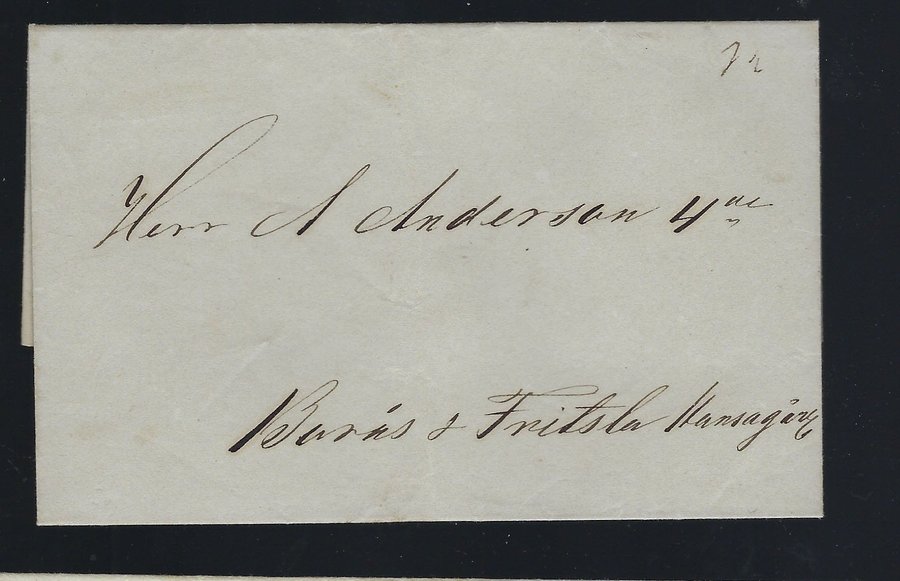 Herr A Anderson 4de
Borås & Fritsla Hansagård